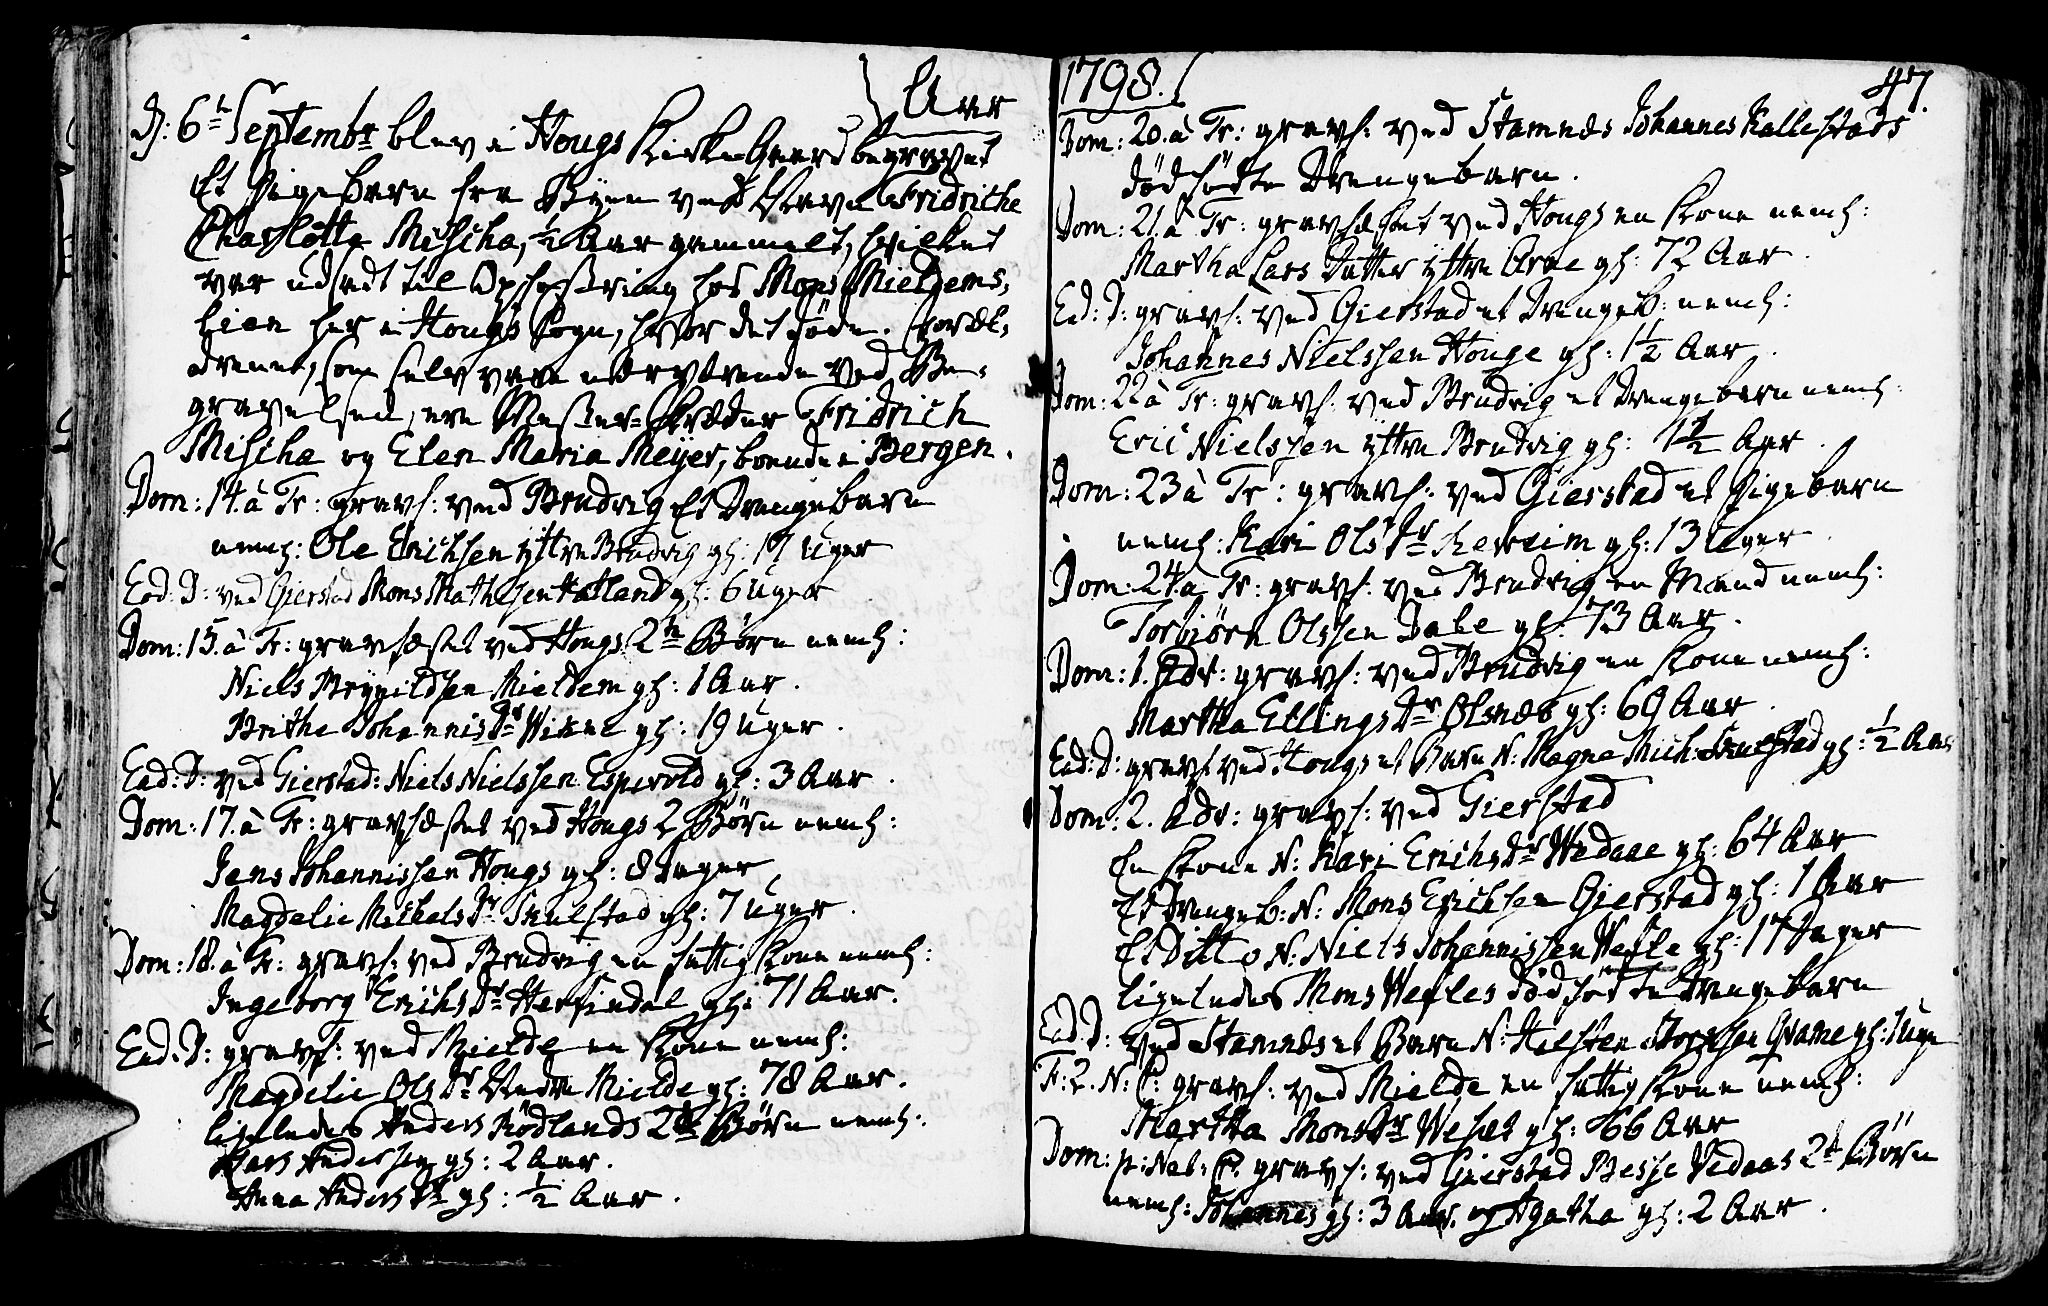 Aar
D: 6te Septembr blev i Hougs KirkeGaard begravet
Et Pigebarn fra Byen ved Navn Fridriche
Charlotte Mischa, ½ Aar gammelt, hvilket
var udsadt til Opfostring hos Mons Mieldems-
lien her i Hougs Sogn, hvor det døde. Foræl-
drene, som selv vare nærværende ved Be-
gravelsen, ere Mester-Skræder Fridrich
Mischa og Elen Maria Meyer, boende i Bergen.
Dom: 14. à Tr: gravf: ved Brudvig Et Drengebarn
neml: Ole Erichsen ÿttre Brudvig gl: 17 Uger
Ead: D: ved Gierstad Mons Mathisen Hatland gl: 6 Uger
Dom: 15. à Tr: gravfæstet ved Hougs 2de Børn neml:
Niels Brynildsen Mieldem gl: 1 Aar.
Brithe Johannisdr Wikne gl: 19 Uger.
Ead: D: ved Gierstad: Niels Nielssen Espevold gl: 3 Aar.
Dom: 17. à Tr: gravfæstet ved Hougs 2 Børn neml:
Jens Johannissen Hougs gl: 8 Dager
Magdelie Michelsdr Skulstad gl: 7 Uger.
Dom: 18. à Tr: gravf: ved Brudvig en fattig Kone neml:
Ingeborg Erichsdr Herfindal gl: 71 Aar.
Ead: D: gravf: ved Mielde en Kone neml:
Magdelie Olsdr Nedre Mielde gl: 78 Aar.
ligeledes Anders Rödlands 2de Børn neml:
Lars Andersen gl: 2 Aar.
Anna Andersdr gl: ½ Aar.
1798. 47.
Dom: 20. à Tr: gravf: ved Stamnes Johannes Kallestads
dødfødte Drengebarn.
Dom: 21. à Tr: gravfæstet ved Hougs en Kone neml:
Martha Lars Datter ÿttre Arne gl: 72 Aar.
Ead: D: gravf: ved Gierstad et Drengeb: neml:
Johannes Nielssen Houge gl: 1½ Aar.
Dom: 22 à Tr: gravf: ved Brudvig et Drengebarn neml:
Eric Nielssen ÿttre Brudvig gl: 1½ Aar.
Dom: 23 à Tr: gravf: ved Gierstad et Pigebarn
neml: Kari Olsdr gl: 13 Uger.
Dom: 24. à Tr: gravf: ved Brudvig en Mand neml:
Torbiörn Olssen Dale gl: 73 Aar.
Dom: 1. Adv: gravf: ved Brudvig en Kone neml:
Martha Ellingsdr Olsnes gl: 69 Aar.
Ead: D: gravf: ved Hougs et Barn N: Magne Mich: Skulstad gl: ½ Aar
Dom: 2. Adv: gravf: ved Gierstad
En Kone N: Kari Erichsdr Wedaae gl: 64 Aar
Et Drengeb: N: Mons Erichsen Gierstad gl: 1 Aar
Et Ditto N: Niels Johannissen Wesle gl: 17 Dager
ligeledes Mons Wesles dödfødte Drengebarn
Ead: D: ved Stamnes et Barn N: Qvame gl: 1 Uge
F: 2. N: C: gravf: ved Mielde en fattig Kone neml:
Martha Monsdr Weset gl: 66 Aar
Dom: p: Nat: C. gravf: ved Gierstad Besse Vedaas 2de Børn
neml: Johannes gl: 3 Aar. og Agatha gl: 2 Aar.